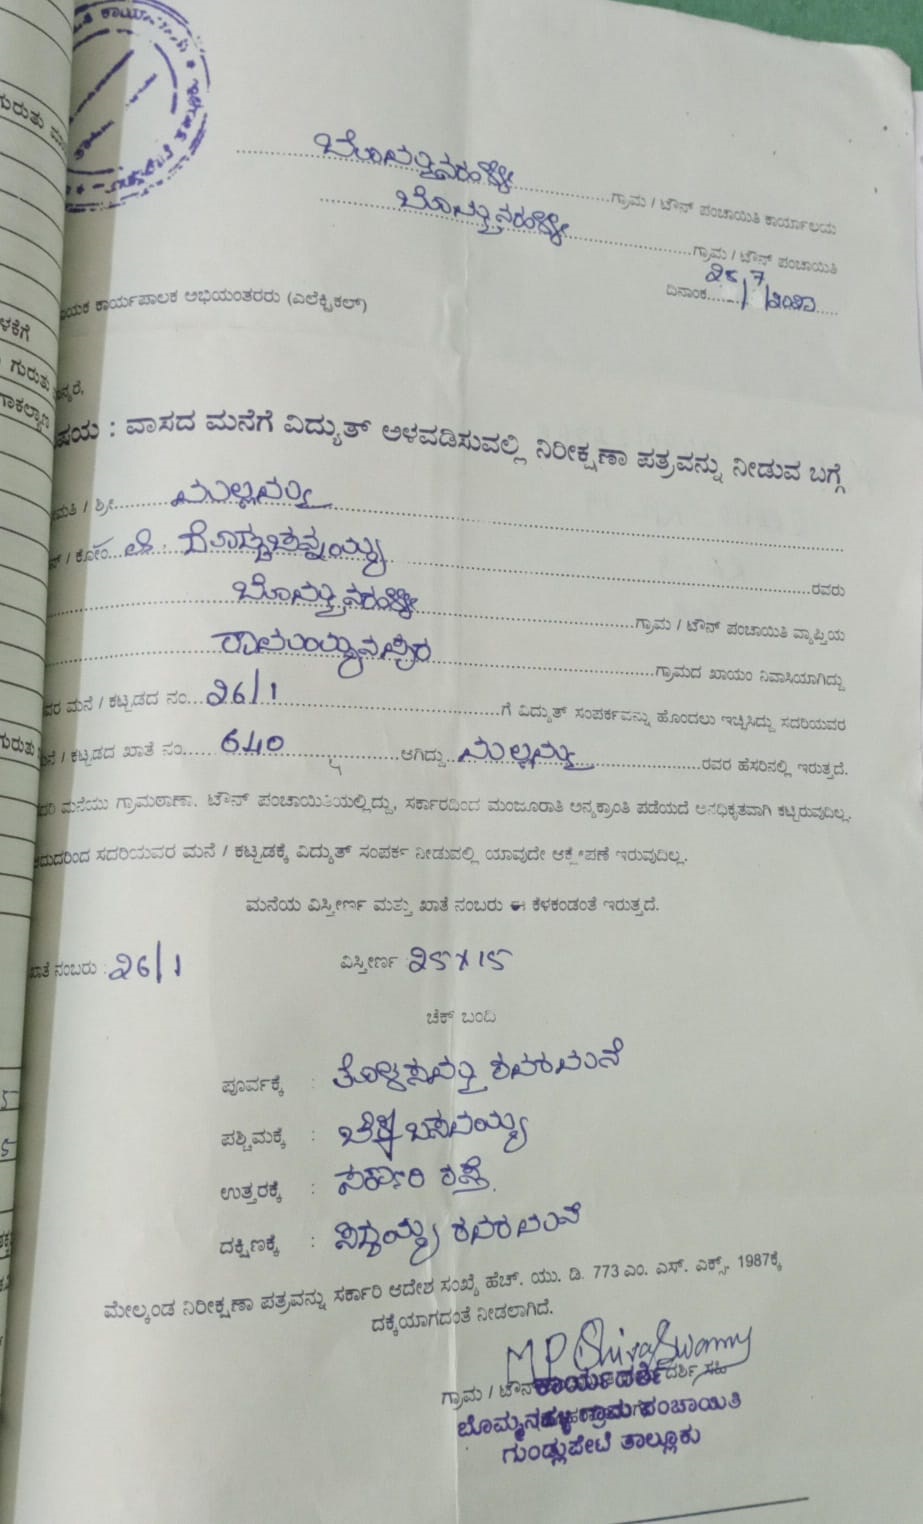 ಬೊಮ್ಮನಹಳ್ಳಿ ಗ್ರಾಮ / ಟೌನ್ ಪಂಚಾಯಿತಿ ಕಾರ್ಯಾಲಯ
ಬೊಮ್ಮನಹಳ್ಳಿ ಗ್ರಾಮ / ಟೌನ್ ಪಂಚಾಯಿತಿ
ದಿನಾಂಕ 25/7/
ಯಕ ಕಾರ್ಯಪಾಲಕ ಅಭಿಯಂತರರು (ಎಲೆಕ್ಟ್ರಿಕಲ್)
ನ್ಯರೆ,
ಷಯ : ವಾಸದ ಮನೆಗೆ ವಿದ್ಯುತ್ ಅಳವಡಿಸುವಲ್ಲಿ ನಿರೀಕ್ಷಣಾ ಪತ್ರವನ್ನು ನೀಡುವ ಬಗ್ಗೆ
ಮತಿ / ಶ್ರೀ ಮಲ್ಲಮ್ಮ
/ ಕೋಂ ರವರು
ಬೊಮ್ಮನಹಳ್ಳಿ ಗ್ರಾಮ / ಟೌನ್ ಪಂಚಾಯಿತಿ ವ್ಯಾಪ್ತಿಯ
ಗ್ರಾಮದ ಖಾಯಂ ನಿವಾಸಿಯಾಗಿದ್ದು
ವರ ಮನೆ / ಕಟ್ಟಡದ ನಂ. 26/1 ಗೆ ವಿದ್ಯುತ್ ಸಂಪರ್ಕವನ್ನು ಹೊಂದಲು ಇಚ್ಛಿಸಿದ್ದು ಸದರಿಯವರ
ನೆ / ಕಟ್ಟಡದ ಖಾತೆ ನಂ. 640 ಆಗಿದ್ದು ಮಲ್ಲಮ್ಮ ರವರ ಹೆಸರಿನಲ್ಲಿ ಇರುತ್ತದೆ.
ದರಿ ಮನೆಯು ಗ್ರಾಮಠಾಣಾ, ಟೌನ್ ಪಂಚಾಯಿತಿಯಲ್ಲಿದ್ದು, ಸರ್ಕಾರದಿಂದ ಮಂಜೂರಾತಿ ಅನ್ಯಕ್ರಾಂತಿ ಪಡೆಯದೆ ಅನಧಿಕೃತವಾಗಿ ಕಟ್ಟಿರುವುದಿಲ್ಲ.
ದುದರಿಂದ ಸದರಿಯವರ ಮನೆ / ಕಟ್ಟಡಕ್ಕೆ ವಿದ್ಯುತ್ ಸಂಪರ್ಕ ನೀಡುವಲ್ಲಿ ಯಾವುದೇ ಆಕ್ಷೇಪಣೆ ಇರುವುದಿಲ್ಲ.
ಮನೆಯ ವಿಸ್ತೀರ್ಣ ಮತ್ತು ಖಾತೆ ನಂಬರು ಈ ಕೆಳಕಂಡಂತೆ ಇರುತ್ತದೆ.
ಖಾತೆ ನಂಬರು : 26/1 ವಿಸ್ತೀರ್ಣ : 25 x 15
ಚೆಕ್ ಬಂದಿ
ಪೂರ್ವಕ್ಕೆ : ತೊಳಸಮ್ಮ ರವರ ಮನೆ
ಪಶ್ಚಿಮಕ್ಕೆ : ಚಿಕ್ಕ ಬಸವಯ್ಯ
ಉತ್ತರಕ್ಕೆ : ಸರ್ಕಾರಿ ರಸ್ತೆ
ದಕ್ಷಿಣಕ್ಕೆ : ಸಿದ್ದಯ್ಯ ರವರ ಮನೆ
ಮೇಲ್ಕಂಡ ನಿರೀಕ್ಷಣಾ ಪತ್ರವನ್ನು ಸರ್ಕಾರಿ ಆದೇಶ ಸಂಖ್ಯೆ ಹೆಚ್. ಯು. ಡಿ. 773 ಎಂ. ಎಸ್. ಎಕ್ಸ್. 1987ಕ್ಕೆ
ದಕ್ಕೆಯಾಗದಂತೆ ನೀಡಲಾಗಿದೆ.
M P ShivaSwamy
ಗ್ರಾಮ / ಟೌನ್
ಕಾರ್ಯದರ್ಶಿ
ಬೊಮ್ಮನಹಳ್ಳಿ ಗ್ರಾಮ ಪಂಚಾಯಿತಿ
ಗುಂಡ್ಲುಪೇಟೆ ತಾಲ್ಲೂಕು